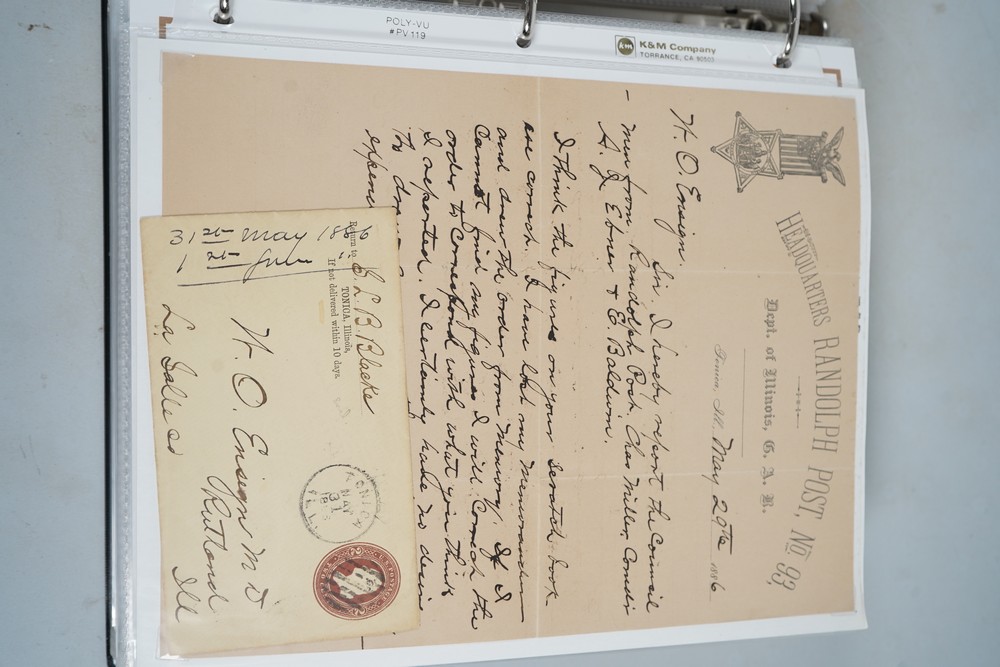 POLY-VU
#PV119
K&M Company
TORRANCE, CA 90503
HEADQUARTERS RANDOLPH POST, No 93,
Dept. of Illinois, G. A. R.
Tonica, Ill. May 29th 1886
W. O. Ensign.
Sir I hereby report the Council
- men from Randolph Post, Chas Miller, Comdr
A. J. Ebner & E. Baldwin.
I think the figures on your Scratch book
are correct. I have lost my Memorandum
and drew the order from Memory. If I
Cannot find my figures I will Correct the
order to Correspond with what you think
I reported. I certainly have no desire
to
31st May 1886
1st June "
Return to S. L. B. Blacke
TONICA, Illinois,
If not delivered within 10 days.
TONICA
MAY
31
ILL.
W. O. Ensign M D
Rutland
La Salle co
Ill